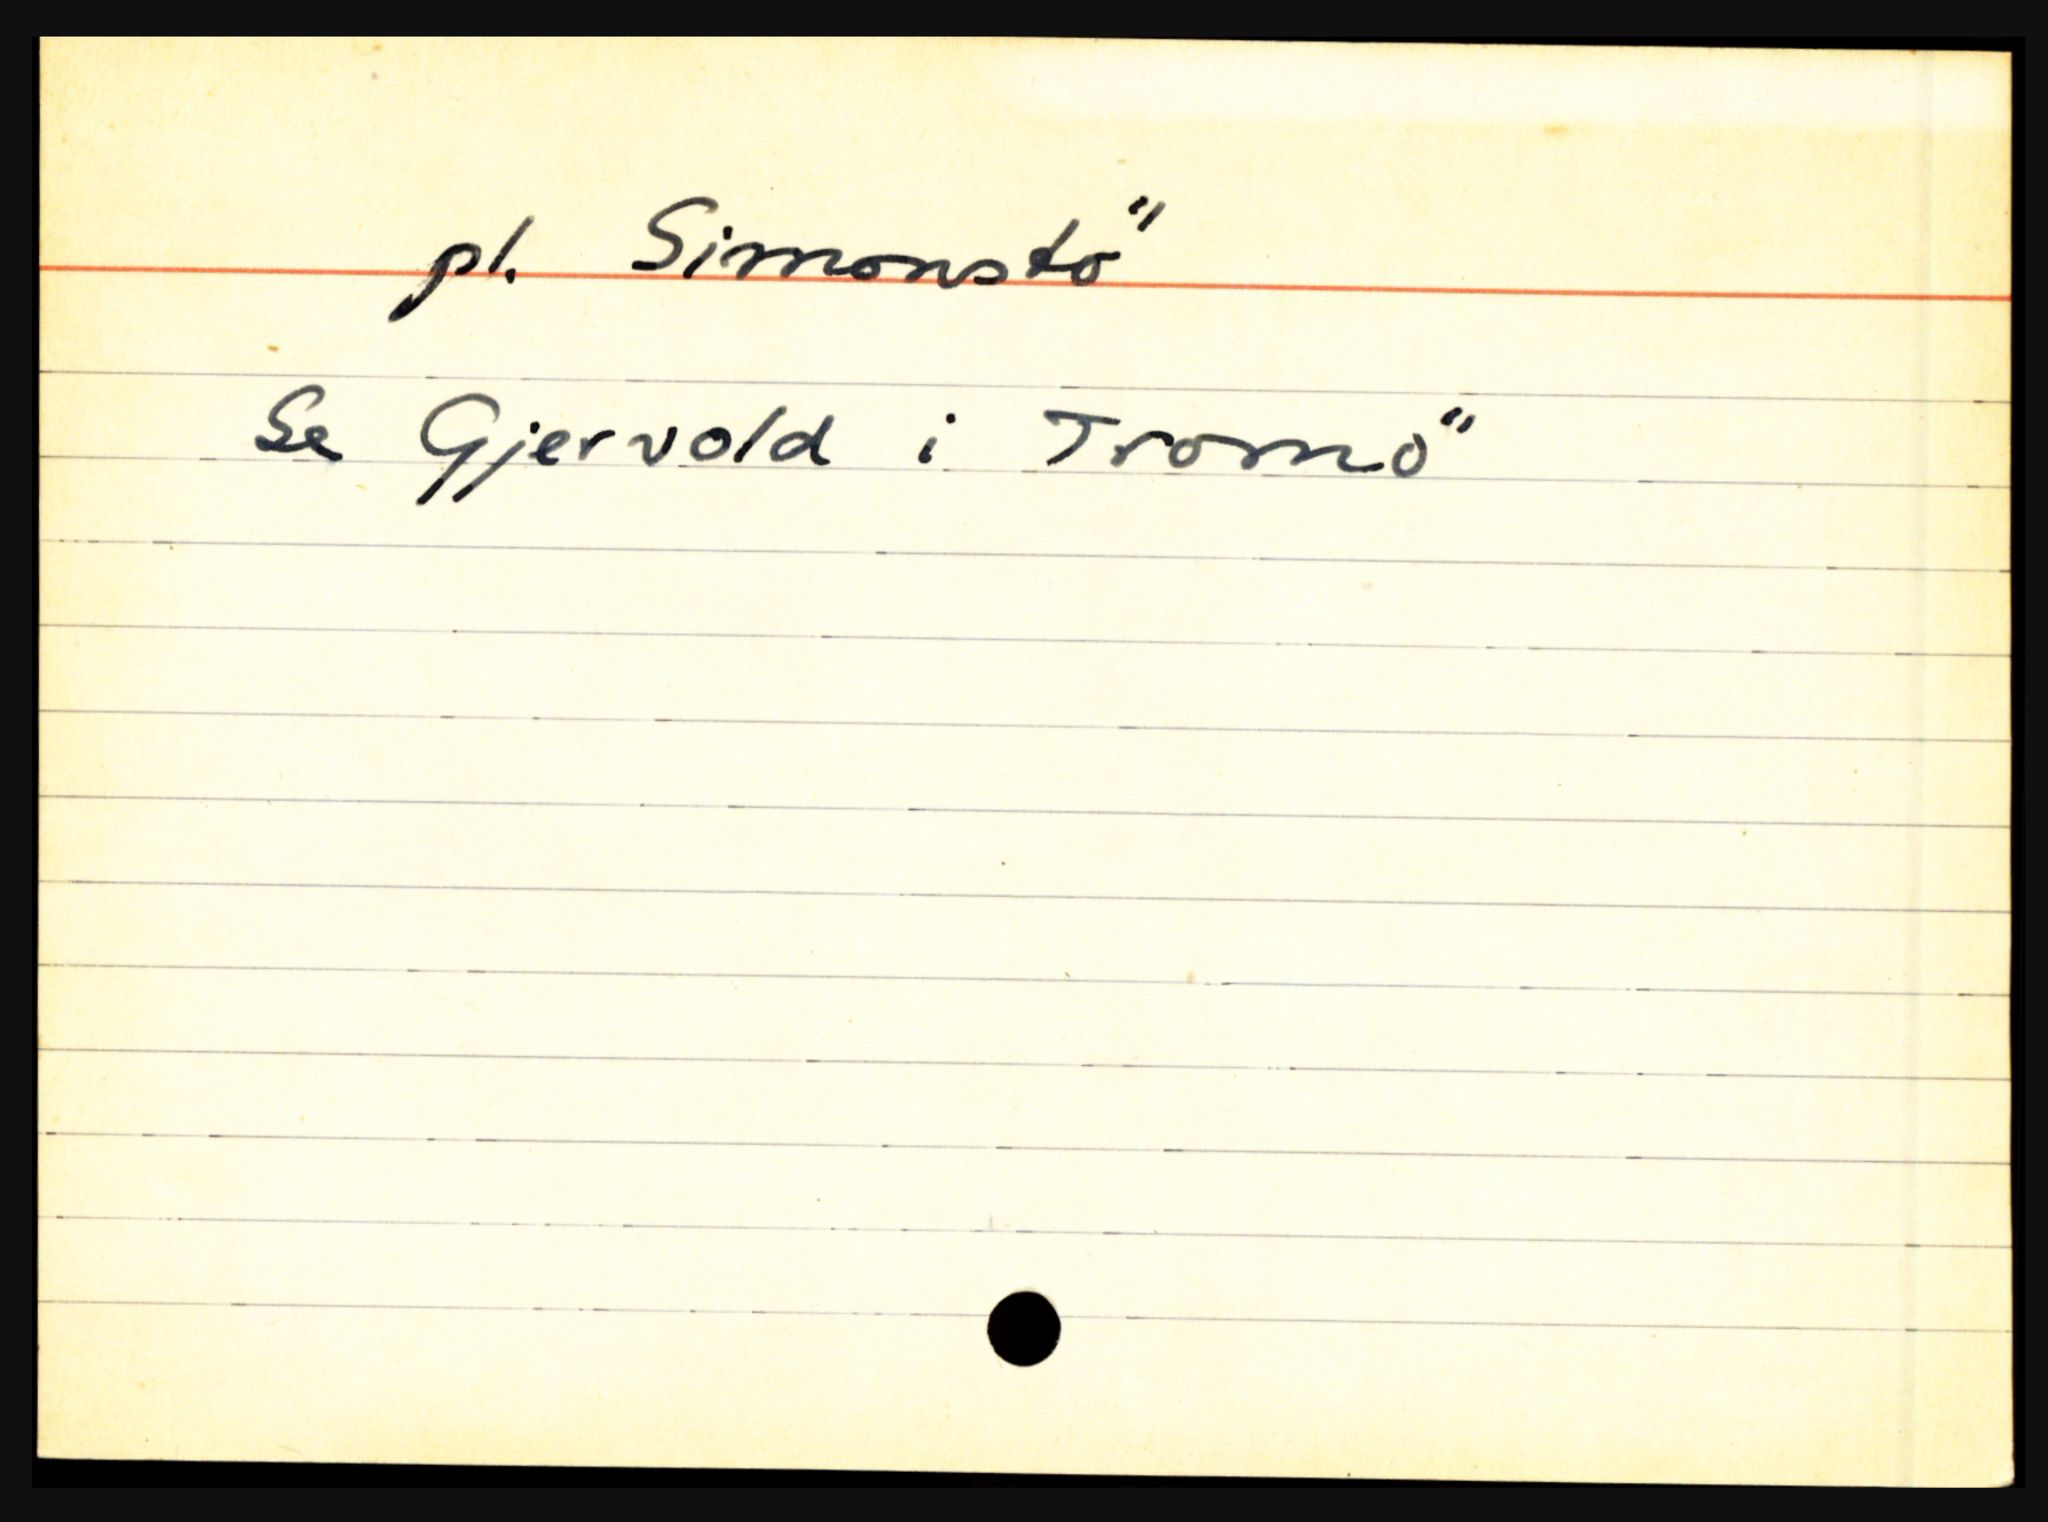 pl. Simonstö
Se Gjervold i Tromö